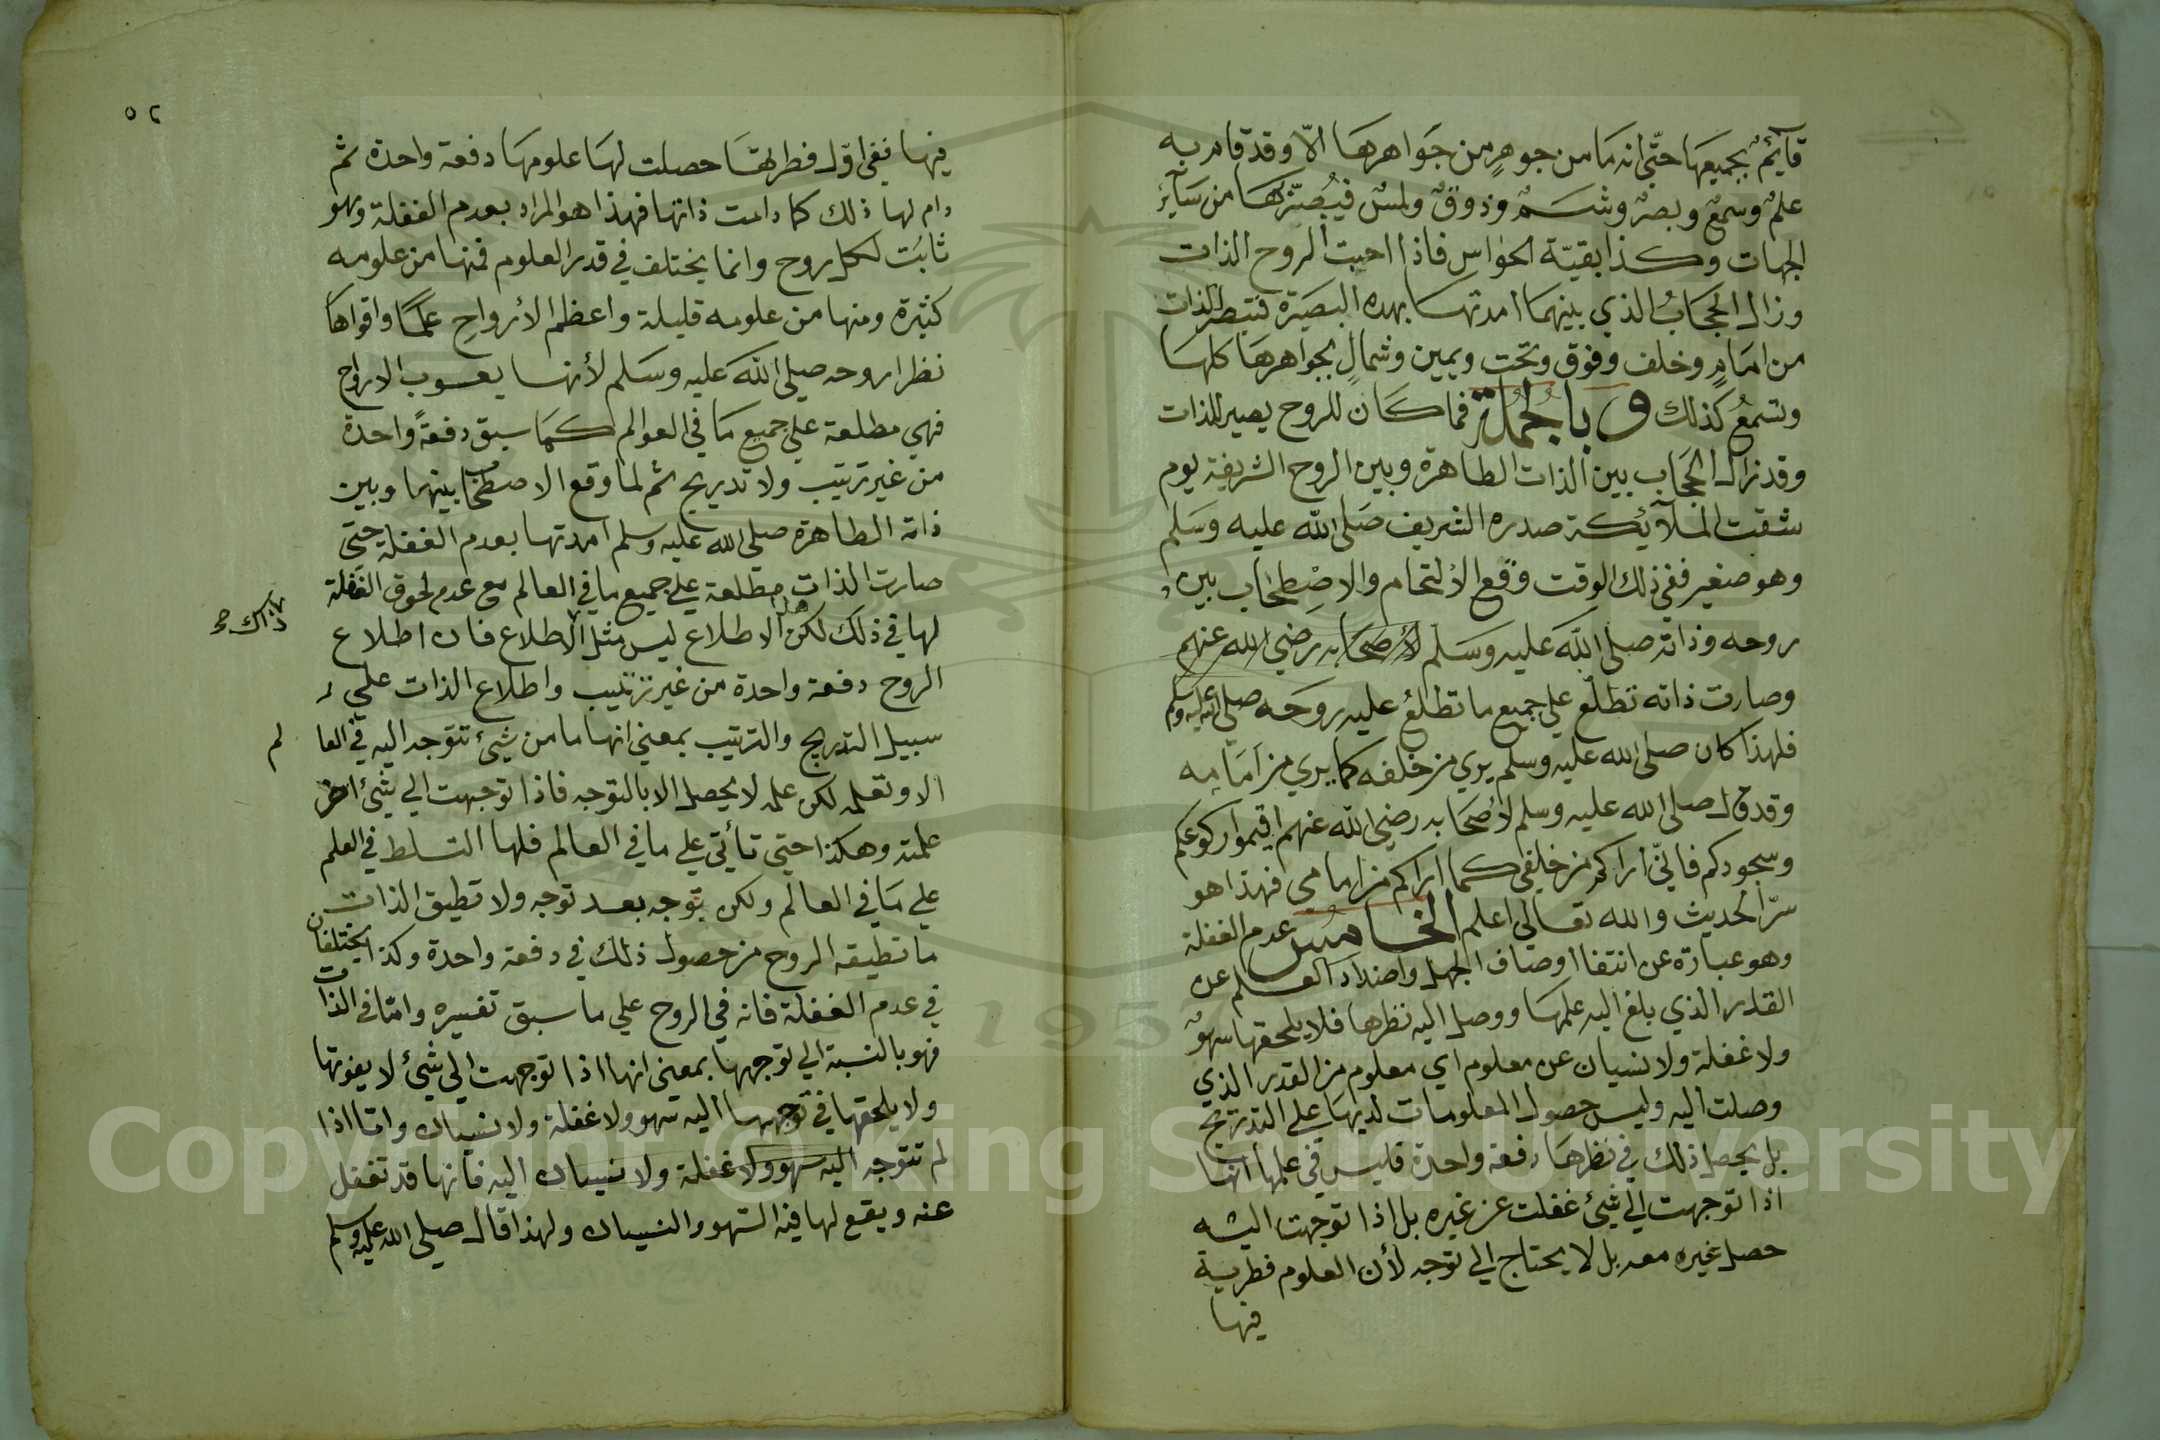 قآئمٌ بجميعها حتّى انه مَا من جوهرٍ من جَواهرهَا الّا وقد قام به
علمٌ وسمعٌ وبصرٌ وشمٌ وذوقٌ ولمسٌ فيُبصّرهَا من سَآئر
الجهات وكذا بقيّة الحواسِ فاذا احبت الروح الذات
وزال الحجَابُ الذي بينهما امدتهَا بهده البصَيرة فتبصر الذات
من امَامٍ وخلف وفوق وتحت ويمين وشمالٍ بجواهرهَا كلهَا
وتسمعُ كذلك وباجُملة فما كَان للروح يصير للذات
وقد زال الحجَاب بين الذات الطاهرة وبين الروح الشريفة يوم
شقت الملآئكة صدره الشريف صَلى الله عليه وسَلم
وهو صغير ففي ذلك الوقت وقع الالتحام والاصْطِحَاب بين
روحه وذاته صلى الله عليه وسَلم لأصحَابه رضي الله عنهم
وصارت ذاته تطلع على جميع ما تطلعُ عليه روحَه صلى الله عليه وسلم
فلهذا كان صلى الله عليه وسلم يري من خلفه كما يري من امَامِه
وقد قال صلى الله عليه وسلم لأصحَابه رضي الله عنهم اقيموا ركوعكم
وسجودكم فانّي اراكم من خلفي كما اراكم من امامي فهذا هو
سرّ الحديث والله تعالي اعلم الخامسُ عدم الغفلة
وهو عبارة عن انتفا اوصاف الجهل واضداد العلم عن
القدر الذي بلغ اليه علمهَا ووصل اليه نظرها فلا يلحقها سهوٌ
ولا غفلة ولا نسيان عن معلوم اي معلوم من القدر الذي
وصلت اليه وليس حصول المعلومات لديهَا على التدريج
بل يحصل ذلك في نظرهَا دفعة واحدة فليس في علمها انها
اذا توجهت الي شيئ غفلت عن غيره بل اذا توجهت اليه
حصل غيره معه بل لا يحتاج الي توجه لأن العلوم فطرية
فيها
٥٢
فيها ففي اول فطرتهَا حصلت لهَا علومهَا دفعة واحدة ثم
دام لها ذلك كما دامت ذاتها فهذا هو المراد بعدم الغفلة وهو
ثابت لكل روح وانما يختلف في قدر العلوم فمنها من علومه
كثيرة ومنها من علومه قليلة واعظم الأرواح علمًا واقواها
نظرا روحه صلى الله عليه وسَلم لأنها يعسوب الارواح
فهي مطلعة علي جميع مَا في العوالم كمَا سبق دفعةً واحدة
من غير ترتيب ولا تدريج ثم لما وقع الاصطحَاب بينها وبين
ذاته الطاهرة صلى الله عليه وسلم امدتها بعدم الغفلة حتي
صارت الذات مطلعة علي جميع ما في العالم مع عدم لحوق الغفلة
لها في ذلك لكن هذا الاطلاع ليس مثل الاطلاع فان اطلاع
ذاك صح
الروح دفعة واحدة من غير ترتيب واطلاع الذات علي
سبيل التدريج والترتيب بمعني انها ما من شيئ تتوجه اليه في العالم
الا وتعلمه لكن علمه لا يحصل الا بالتوجه فاذا توجهت الي شيئ اخر
علمته وهكذا حتي تأتي علي ما في العالم فلها التسلط في العلم
علي مَا في العالم ولكن بتوجه بعد توجه ولا تطيق الذات
ما تطيقه الروح من حصول ذلك في دفعة واحدة وكذا يختلفان
في عدم الغفلة فانه في الروح علي ما سبق تفسيره وامّا في الذات
فهو بالنسبة الي توجهها بمعني انها اذا توجهت الي شيئ لا يفوتها
ولا يلحقها في توجهها اليه سهو ولا غفلة ولا نسيان وامّا اذا
لم تتوجه اليه سهو ولا غفلة ولا نسيان اليه فانها قد تغفل
عنه ويقع لها فيه السّهو والنسيان ولهذا قال صلى الله عليه وسلم
1957
Copyright © King Saud University